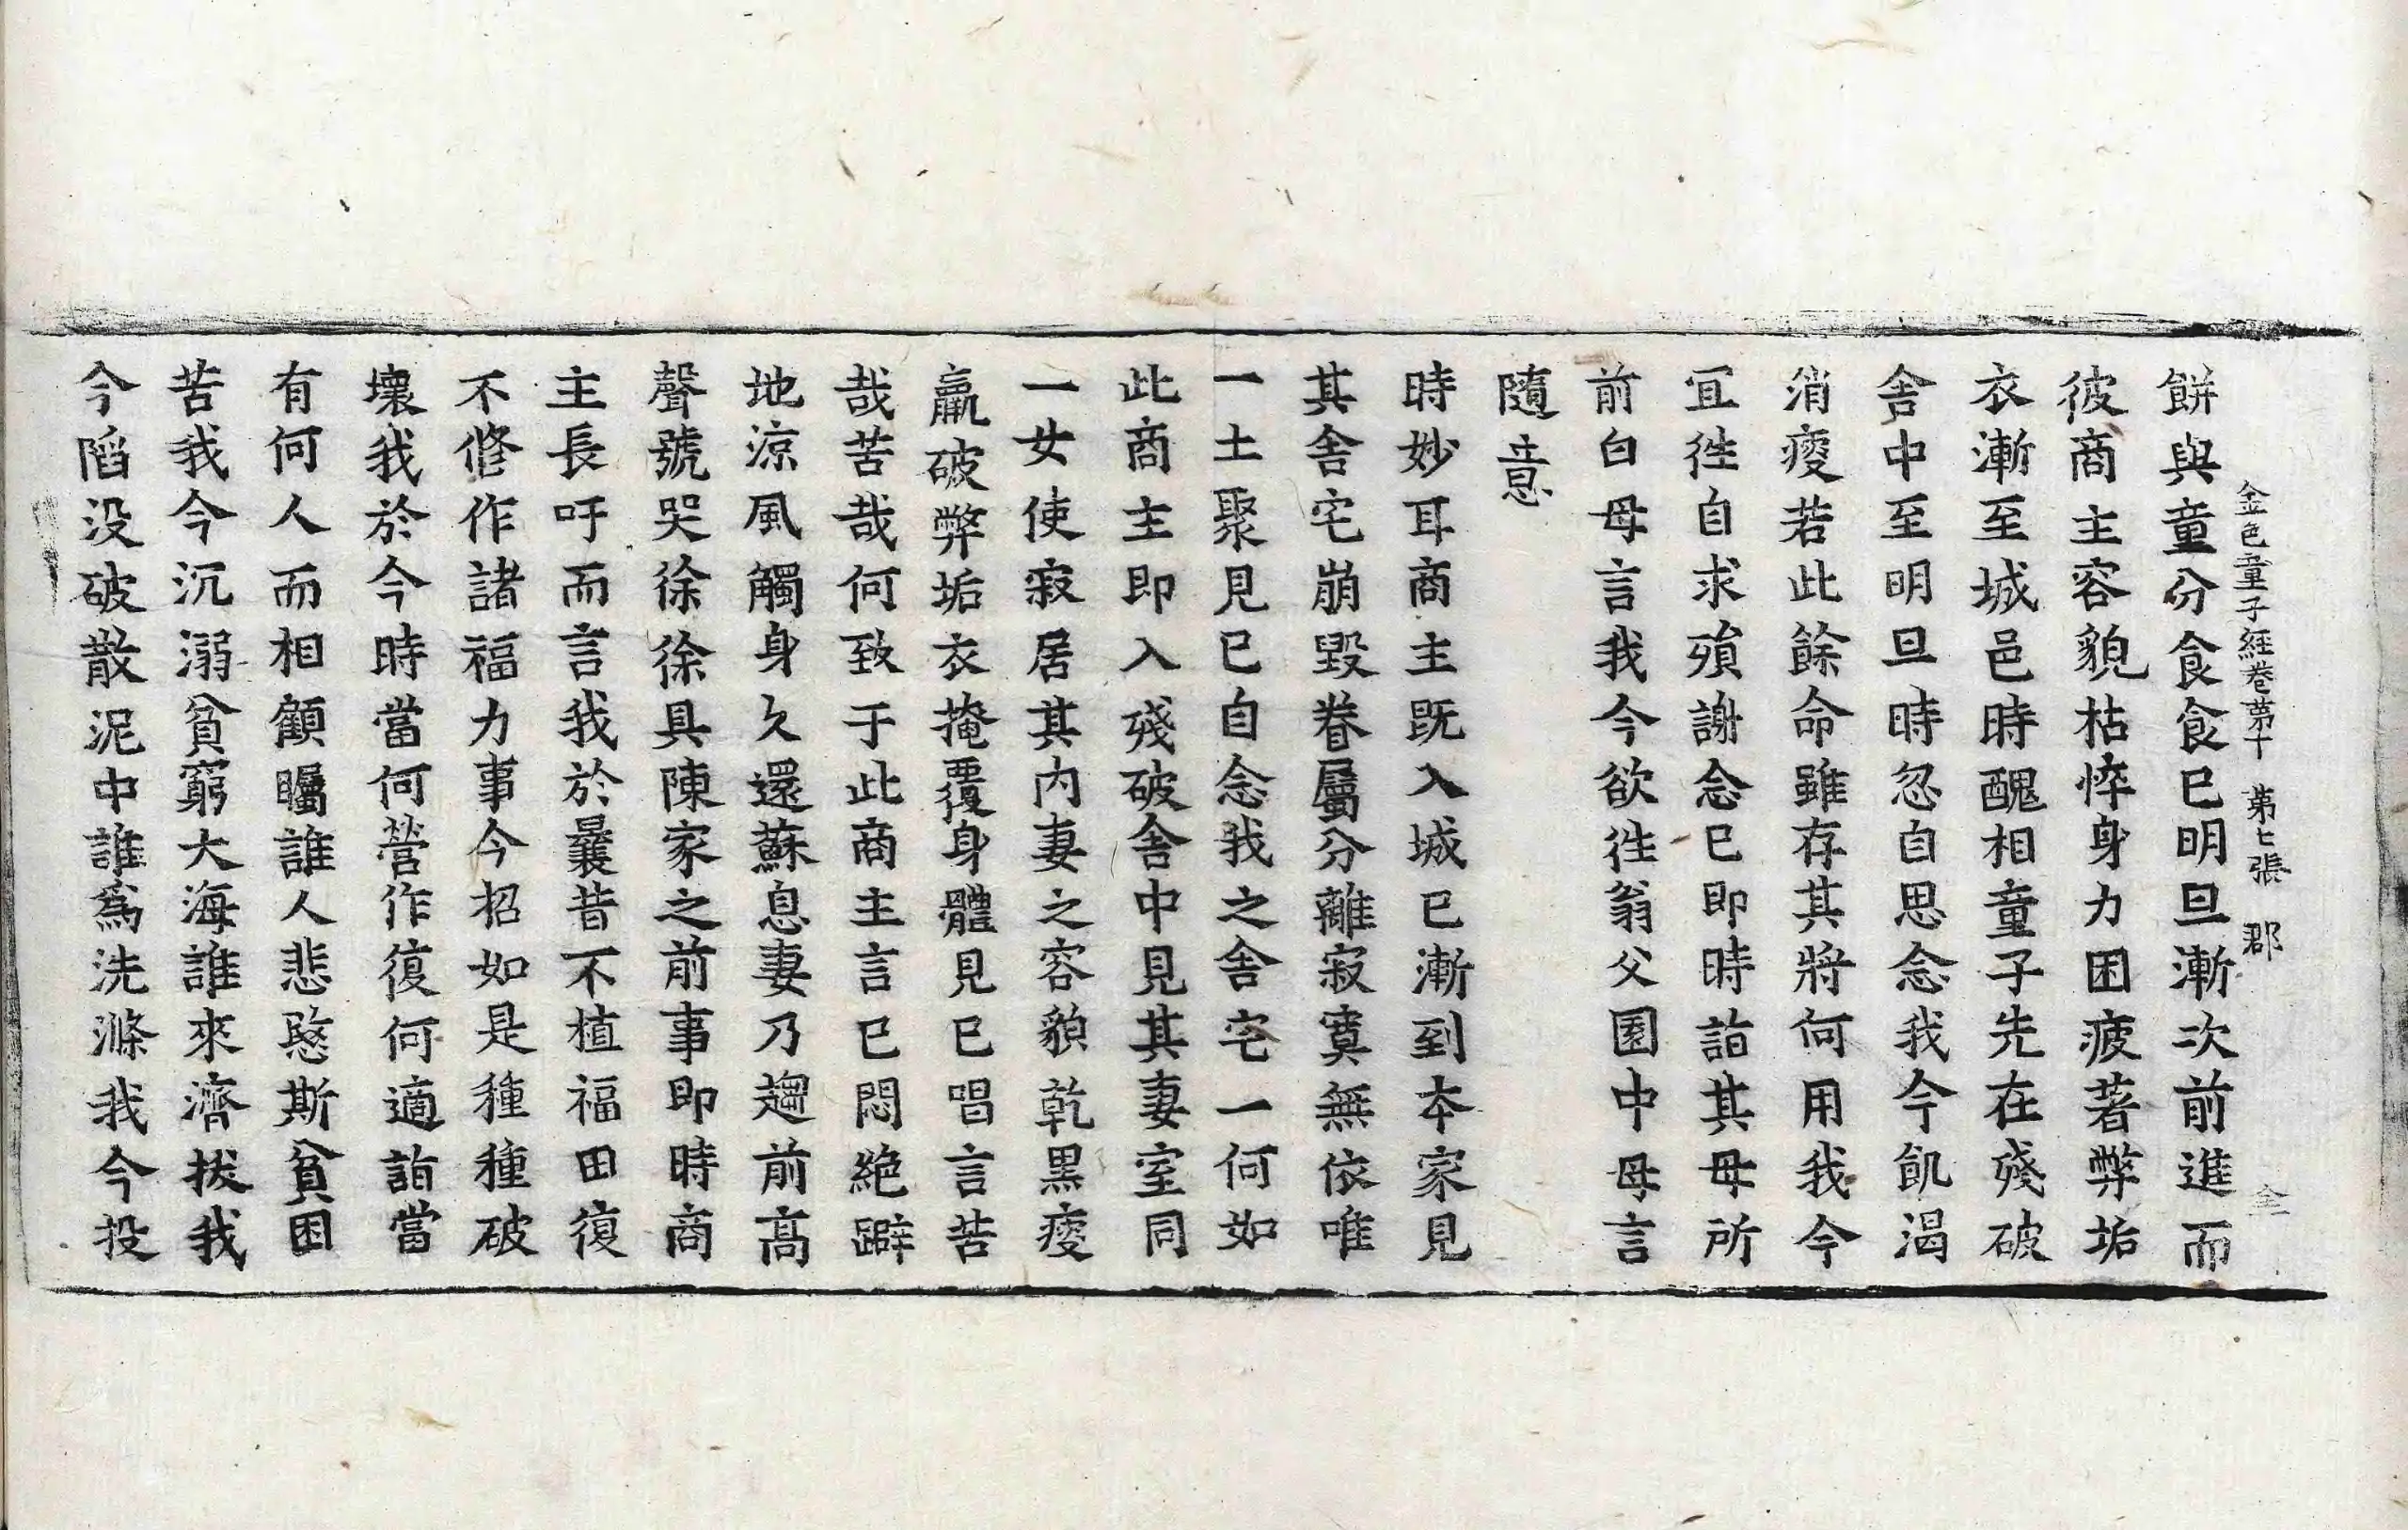 金色童子經卷第十 第七張 郡
餅與童分食食已明旦漸次前進而
彼商主容貌枯悴身力困疲著弊垢
衣漸至城邑時醜相童子先在殘破
舍中至明旦時忽自思念我今飢渴
消瘦若此餘命雖存其將何用我今
宜徃自求殞謝念已即時詣其母所
前白母言我今欲徃翁父園中母言
隨意
時妙耳商主既入城已漸到本家見
其舍宅崩毀眷屬分離寂寞無依唯
一土聚見已自念我之舍宅一何如
此商主即入殘破舍中見其妻室同
一女使寂居其內妻之容貌乾黑瘦
羸破弊垢衣掩覆身體見已唱言苦
哉苦哉何致于此商主言已悶絕躃
地涼風觸身久還蘇息妻乃趨前高
聲號哭徐徐具陳家之前事即時商
主長吁而言我於曩昔不植福田復
不修作諸福力事今招如是種種破
壞我於今時當何營作復何適詣當
有何人而相顧矚誰人悲愍斯貧困
苦我今沉溺貧窮大海誰來濟拔我
今陷没破散泥中誰爲洗滌我今投
仝